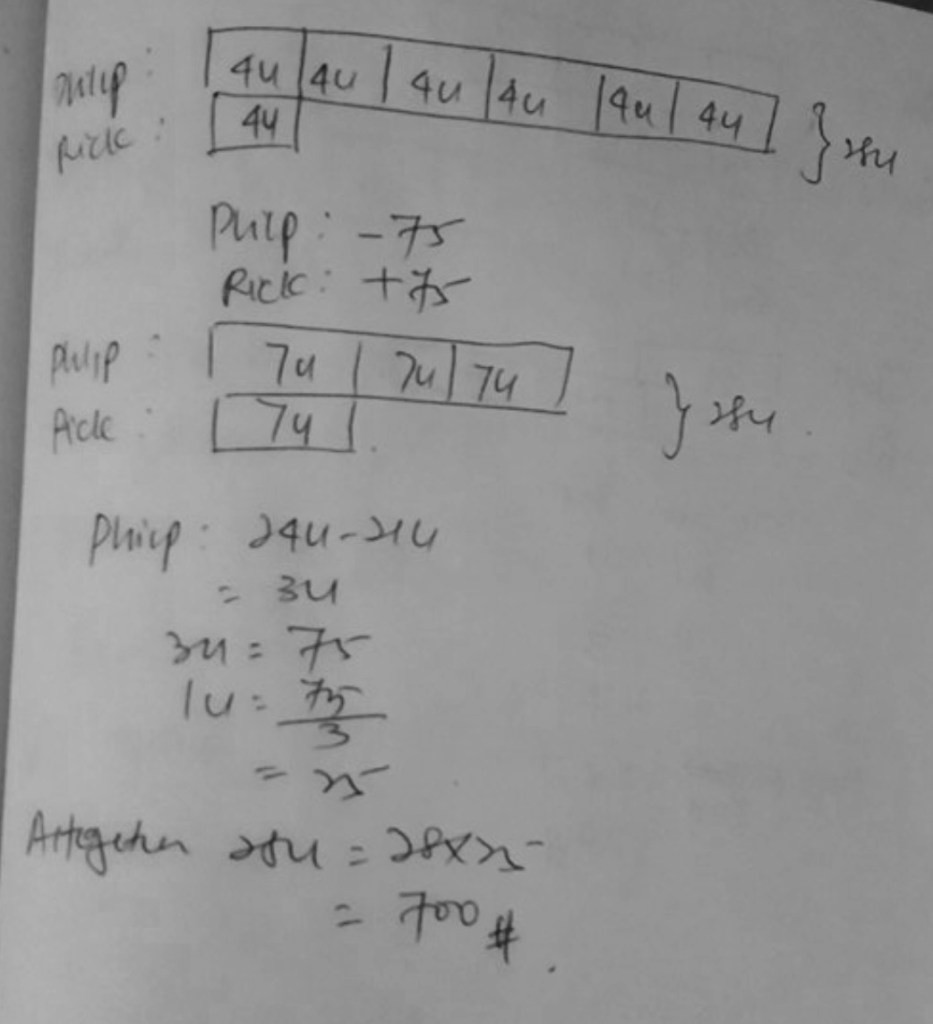 Philip: 4u 4u 4u 4u 4u 4u } 28u
Rick: 4u
Philip: -75
Rick: +75
Philip: 7u 7u 7u } 28u
Rick: 7u
Philip: 24u-21u
= 3u
3u = 75
1u = 75/3
= 25
Altogether 28u = 28x25
= 700 #